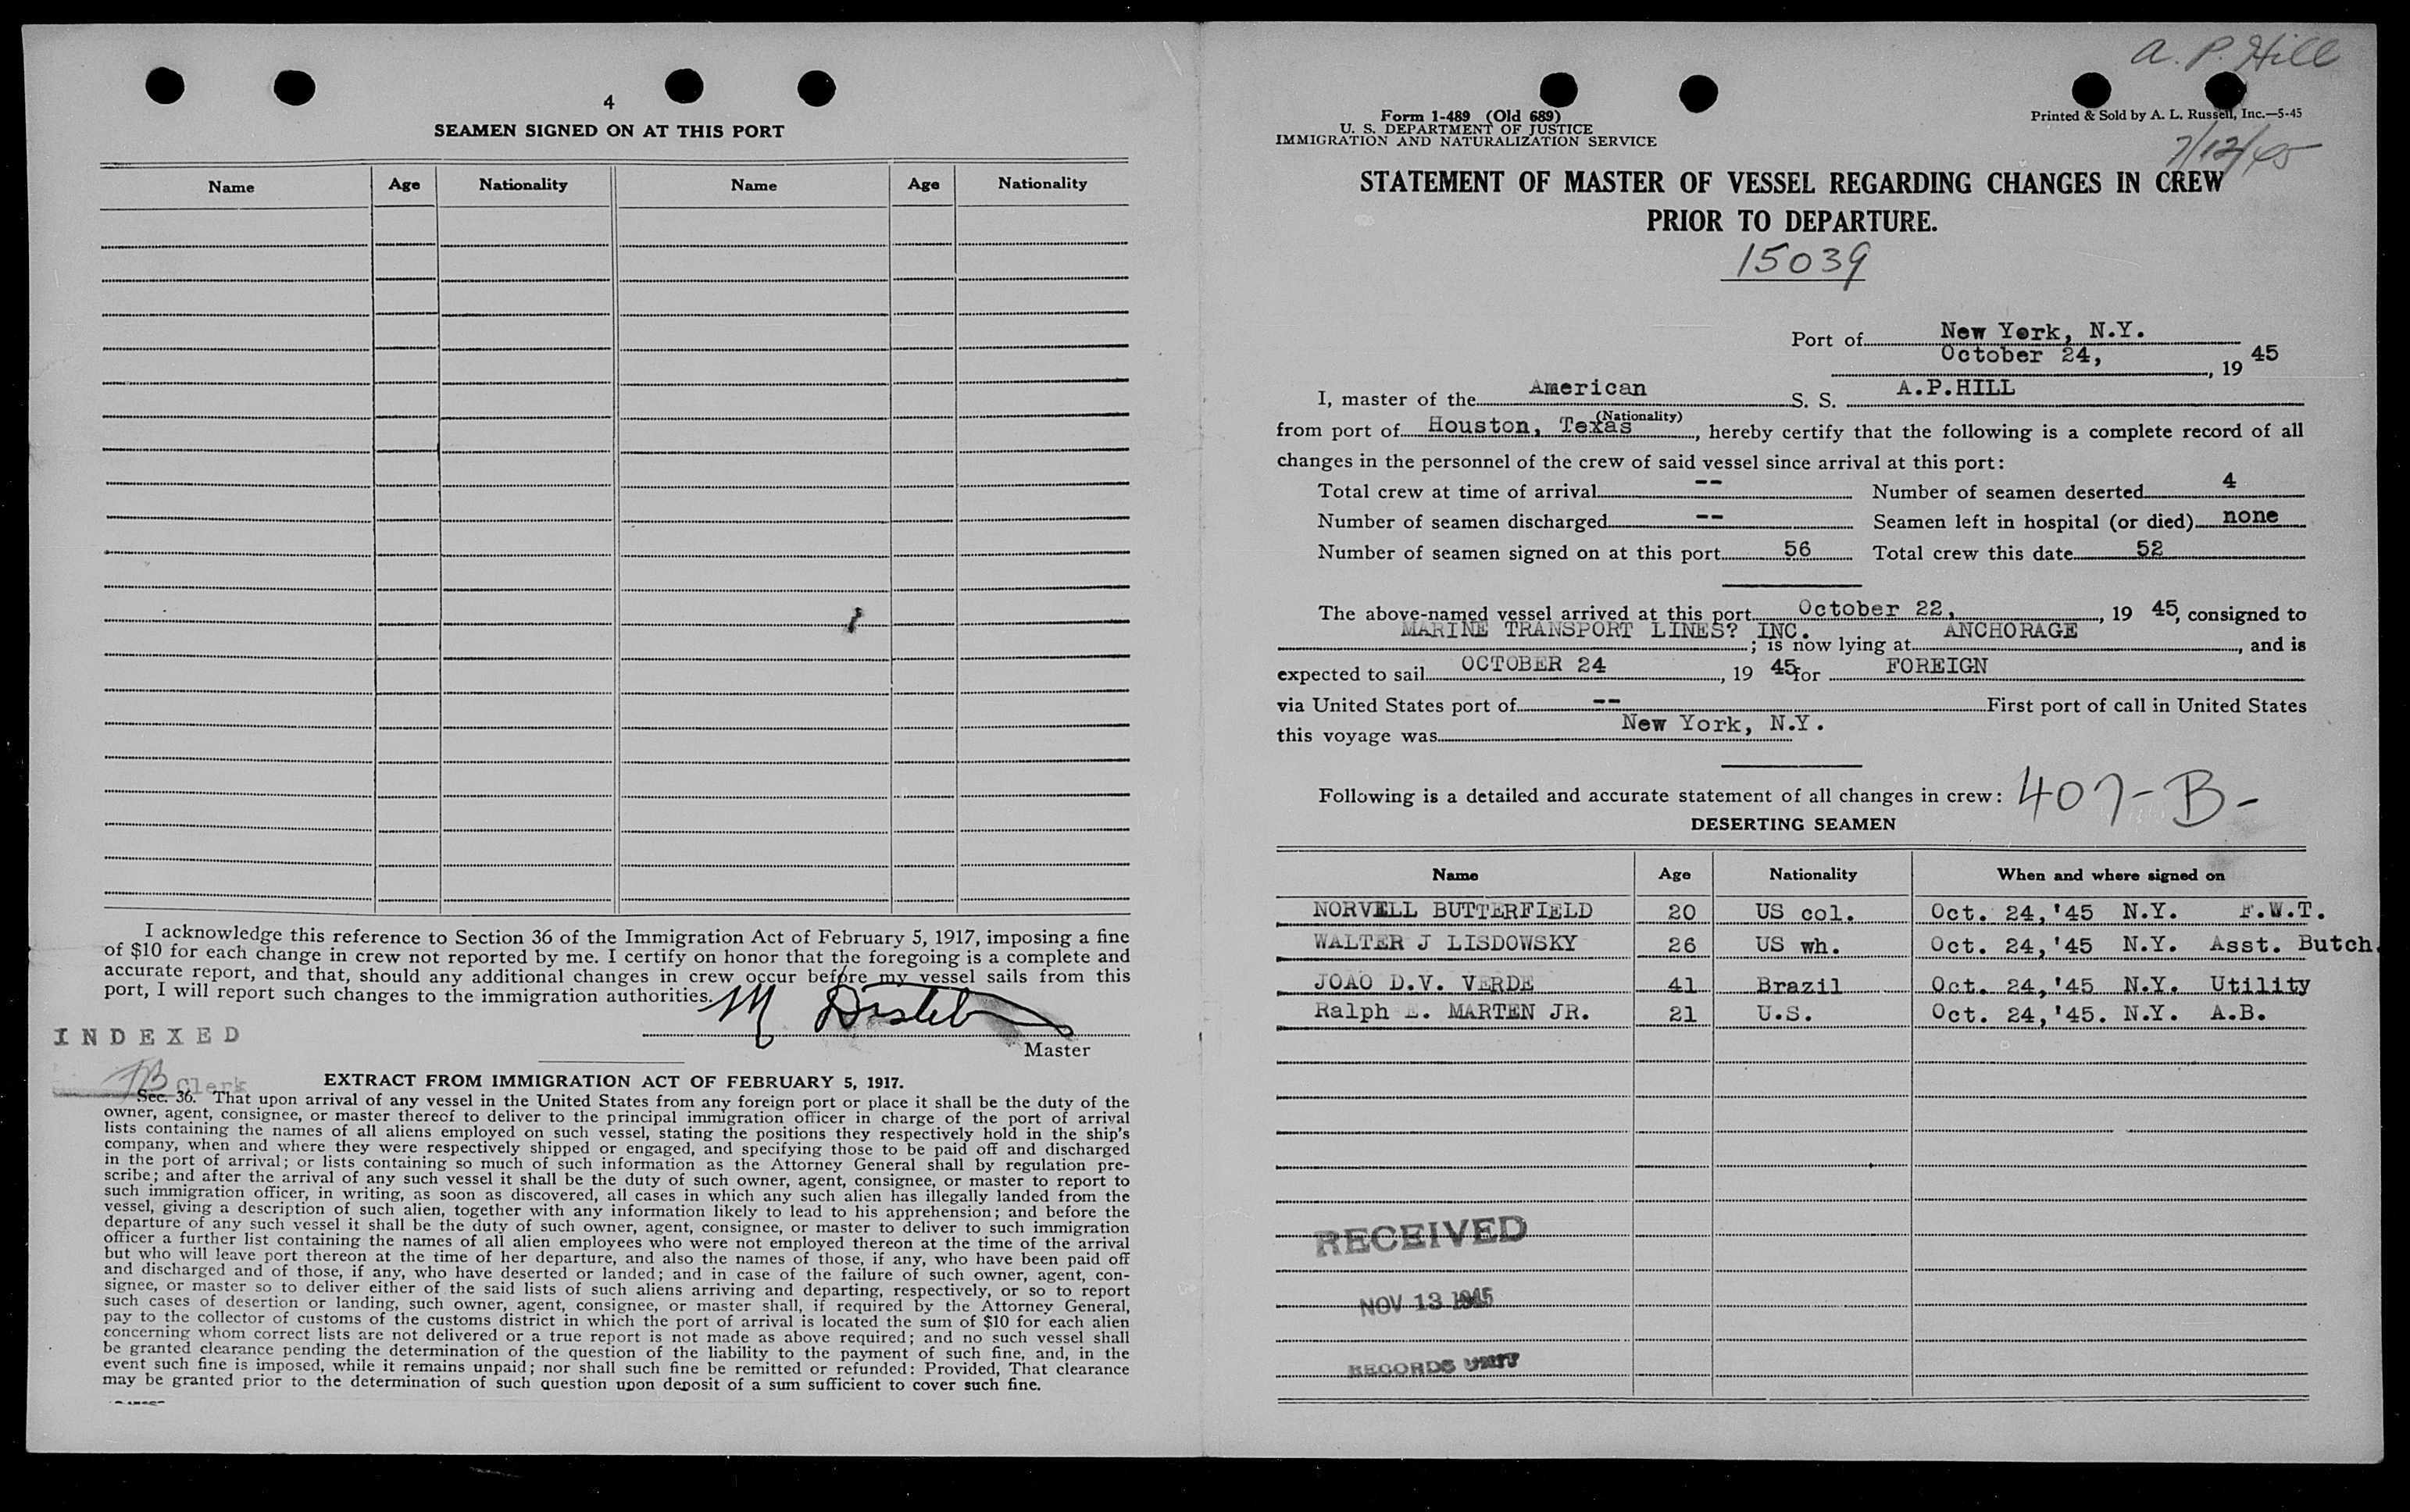 4
SEAMEN SIGNED ON AT THIS PORT
Name Age Nationality Name Age Nationality
I acknowledge this reference to Section 36 of the Immigration Act of February 5, 1917, imposing a fine
of $10 for each change in crew not reported by me. I certify on honor that the foregoing is a complete and
accurate report, and that, should any additional changes in crew occur before my vessel sails from this
port, I will report such changes to the immigration authorities.
M
Master
INDEXED
Clerk
EXTRACT FROM IMMIGRATION ACT OF FEBRUARY 5, 1917.
Sec. 36. That upon arrival of any vessel in the United States from any foreign port or place it shall be the duty of the
owner, agent, consignee, or master thereof to deliver to the principal immigration officer in charge of the port of arrival
lists containing the names of all aliens employed on such vessel, stating the positions they respectively hold in the ship's
company, when and where they were respectively shipped or engaged, and specifying those to be paid off and discharged
in the port of arrival; or lists containing so much of such information as the Attorney General shall by regulation pre-
scribe; and after the arrival of any such vessel it shall be the duty of such owner, agent, consignee, or master to report to
such immigration officer, in writing, as soon as discovered, all cases in which any such alien has illegally landed from the
vessel, giving a description of such alien, together with any information likely to lead to his apprehension; and before the
departure of any such vessel it shall be the duty of such owner, agent, consignee, or master to deliver to such immigration
officer a further list containing the names of all alien employees who were not employed thereon at the time of the arrival
but who will leave port thereon at the time of her departure, and also the names of those, if any, who have been paid off
and discharged and of those, if any, who have deserted or landed; and in case of the failure of such owner, agent, con-
signee, or master so to deliver either of the said lists of such aliens arriving and departing, respectively, or so to report
such cases of desertion or landing, such owner, agent, consignee, or master shall, if required by the Attorney General,
pay to the collector of customs of the customs district in which the port of arrival is located the sum of $10 for each alien
concerning whom correct lists are not delivered or a true report is not made as above required; and no such vessel shall
be granted clearance pending the determination of the question of the liability to the payment of such fine, and, in the
event such fine is imposed, while it remains unpaid; nor shall such fine be remitted or refunded: Provided, That clearance
may be granted prior to the determination of such question upon deposit of a sum sufficient to cover such fine.
A. P. Hill
Form 1-489 (Old 689)
U. S. DEPARTMENT OF JUSTICE
IMMIGRATION AND NATURALIZATION SERVICE
Printed & Sold by A. L. Russell, Inc.—5-45
7/12/45
STATEMENT OF MASTER OF VESSEL REGARDING CHANGES IN CREW
PRIOR TO DEPARTURE.
15039
Port of New York, N.Y.
October 24, , 19 45
I, master of the American S. S. A.P.HILL
(Nationality)
from port of Houston, Texas , hereby certify that the following is a complete record of all
changes in the personnel of the crew of said vessel since arrival at this port:
Total crew at time of arrival -- Number of seamen deserted 4
Number of seamen discharged -- Seamen left in hospital (or died) none
Number of seamen signed on at this port 56 Total crew this date 52
The above-named vessel arrived at this port October 22, , 19 45, consigned to
MARINE TRANSPORT LINES? INC. ; is now lying at ANCHORAGE , and is
expected to sail OCTOBER 24 , 19 45 for FOREIGN
via United States port of -- First port of call in United States
this voyage was New York, N.Y.
Following is a detailed and accurate statement of all changes in crew: 407-B-
DESERTING SEAMEN
Name Age Nationality When and where signed on
NORVELL BUTTERFIELD 20 US col. Oct. 24,'45 N.Y. F.W.T.
WALTER J LISDOWSKY 26 US wh. Oct. 24,'45 N.Y. Asst. Butch.
JOAO D.V. VERDE 41 Brazil Oct. 24,'45 N.Y. Utility
Ralph E. MARTEN JR. 21 U.S. Oct. 24,'45. N.Y. A.B.
RECEIVED
NOV 13 1945
RECORDS UNIT